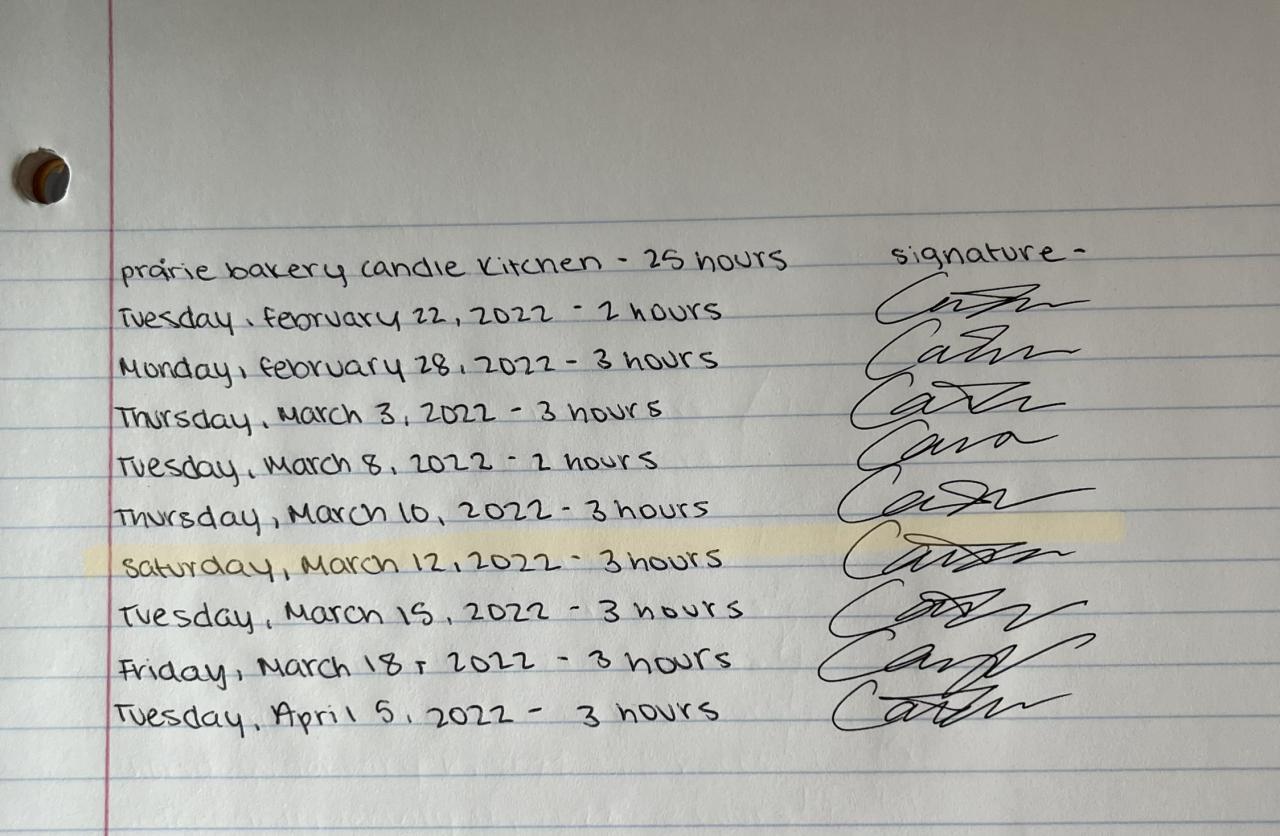 prairie bakery candle kitchen - 25 hours signature -
Tuesday, february 22, 2022 - 2 hours
Monday, february 28, 2022 - 3 hours
Thursday, March 3, 2022 - 3 hours
Tuesday, March 8, 2022 - 2 hours
Thursday, March 10, 2022 - 3 hours
saturday, March 12, 2022 - 3 hours
Tuesday, March 15, 2022 - 3 hours
Friday, March 18, 2022 - 3 hours
Tuesday, April 5, 2022 - 3 hours